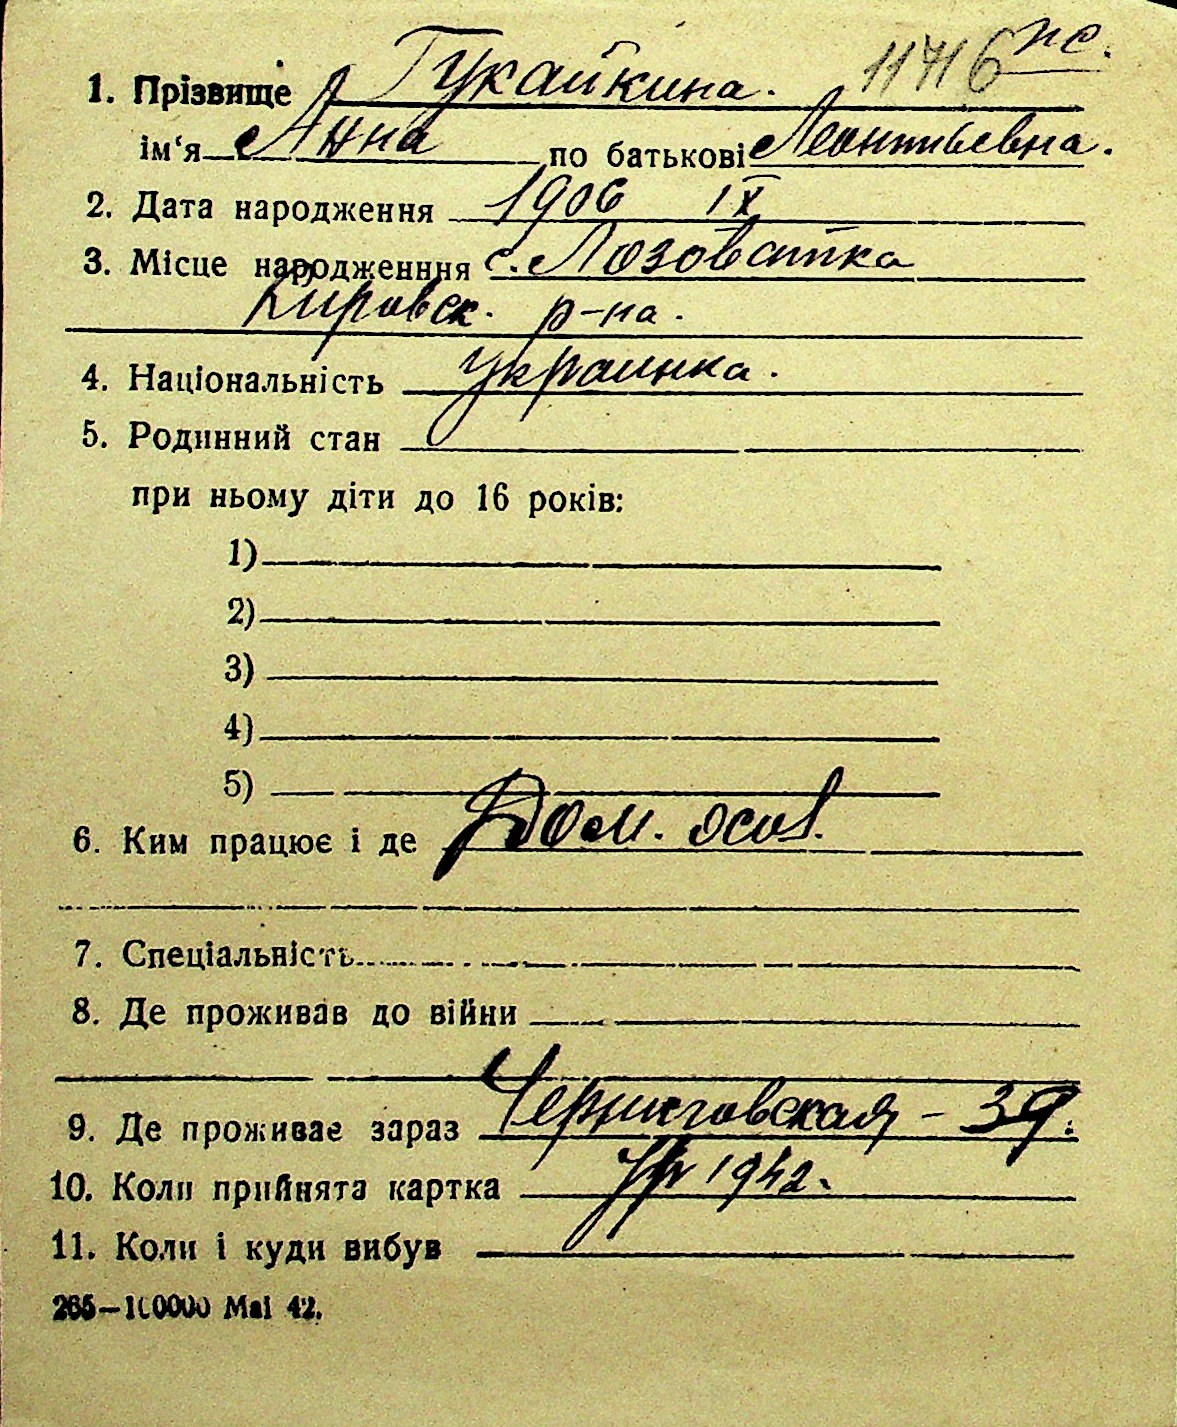 11716 пс.
1. Прізвище Гукайкина.
ім'я Анна по батькові Леонтьевна.
2. Дата народження 1906 IX
3. Місце народженння с. Лозоватка
Кировск. р-на.
4. Національність украинка.
5. Родинний стан
при ньому діти до 16 років:
1)
2)
3)
4)
5)
6. Ким працює і де Дом. особ.
7. Спеціальність
8. Де проживав до війни
9. Де проживає зараз Черниговская – 39.
10. Коли прийнята картка 1942.
11. Коли і куди вибув
265—100000 Маі 42.